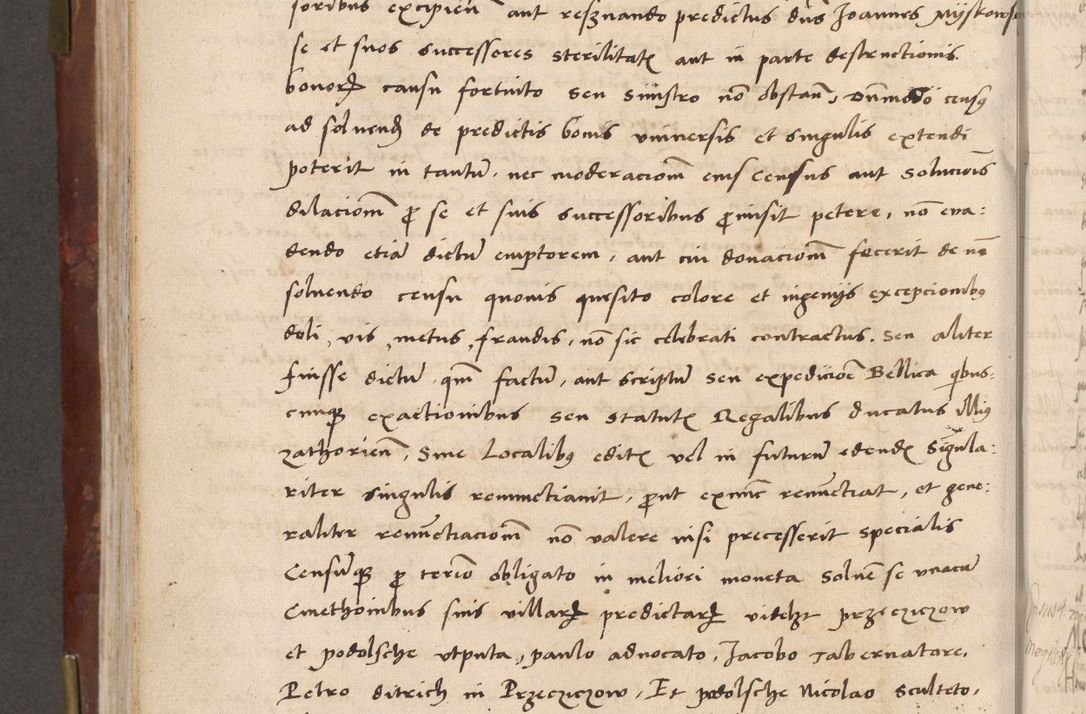 soribus excipien̄ aut resignando predictus dn̄s Joannes Myskowsc
se et suos successores sterilitatꝭ aut in parte destructionis
bonorꝝ casu fortuito seu sinistro nō obstan̄, Dūmodo censꝰ
ad soluendꝭ de predictis bonis vniuersis et singulis extendi
poterit in tantū, nec moderacionē eius Census aut Solucionis
dilacionē ꝓ se et suis successoribus ꝓmisit petere, nō eua:
dendo etiā dictū emptorem, aut cui donacionē fecerit de nō
soluendo censu quouis quesito colore et ingenijs excepcionibꝰ
doli, vis, metus, fraudis, nō sic celebrati contractus. Seu aliter
fuisse dictū qm̄ factū, aut scriptū seu expedicioē Bellica qͥbus:
cunqꝫ exactionibus seu statutꝭ Regalibus ducatus illiꝰ
zathorien̄, Siue Localibꝰ editꝭ vel in futurū edendꝭ Singula:
riter singulis renunctiauit, ꝓut exnūc renūctiat, et gene:
raliter renūctiacionē nō valere nisi precesserit specialis
Censūqꝫ ꝓ tercio obligato in meliori moneta Soluē se vnacū
Cmethonibus suis villarꝝ predictarꝝ videlzt przeczyczow
et podolsche vtputa, paulo aduocato, Jacobo Tabernatore,
Petro ditrich in Przeczyczow, Et podolsche Nicolao Sculteto,